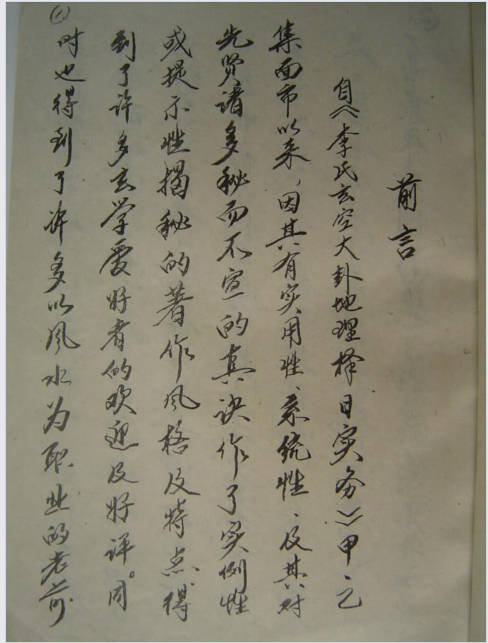 前言
自《李氏玄空大卦地理择日实务》甲、乙
集面市以来，因其有实用性、系统性、及其对
先贤诸多秘而不宣的真诀作了实例性
或提示性揭秘的著作风格及特点，得
到了许多玄学爱好者的欢迎及好评。同
时也得到了许多以风水为职业的老前
(1)